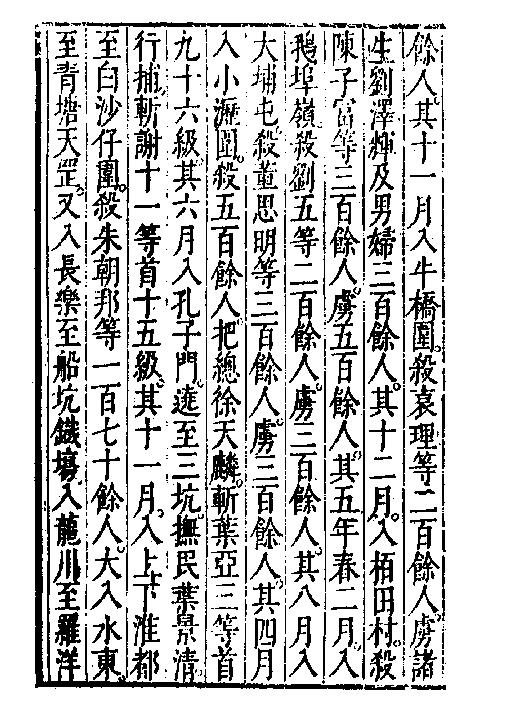 餘人其十一月入牛橋圍殺袁理等二百餘人虜諸
生劉澤輝及男婦三百餘人其十二月入栢田村殺
陳子富等三百餘人虜五百餘人其五年春二月入
鵝埠嶺殺劉五等二百餘人虜三百餘人其八月入
大埔屯殺董思明等三百餘人虜三百餘人其四月
入小瀝圍殺五百餘人把總徐天麟斬葉亞三等首
九十六級其六月入孔子門遶至三坑撫民葉景清
行捕斬謝十一等首十五級其十一月入上下淮都
至白沙仔圍殺朱朝邦等一百七十餘人大入水東
至青塘天罡又入長樂至船坑鐵場入龍川至羅洋